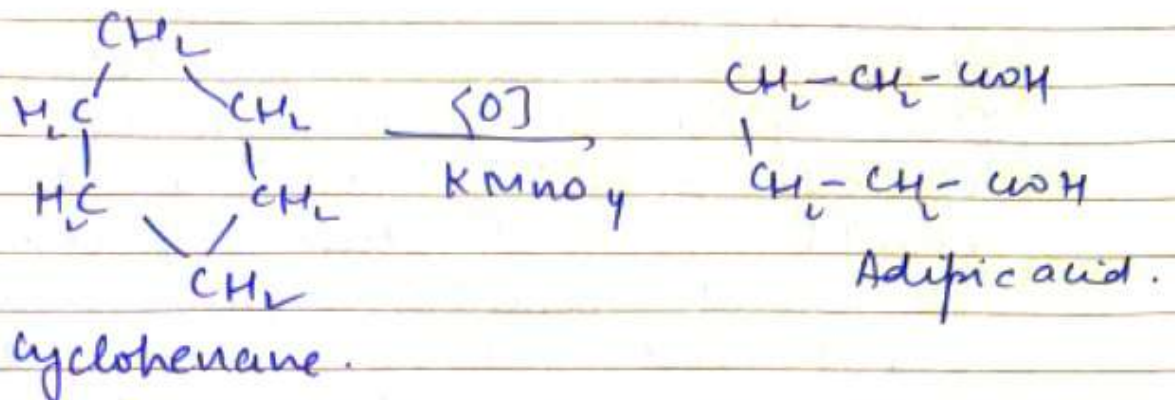 CH₂
H₂C CH₂ [O] CH₂-CH₂-COOH
H₂C CH₂ KMnO₄ CH₂-CH₂-COOH
CH₂ Adipic acid.
Cyclohexane.